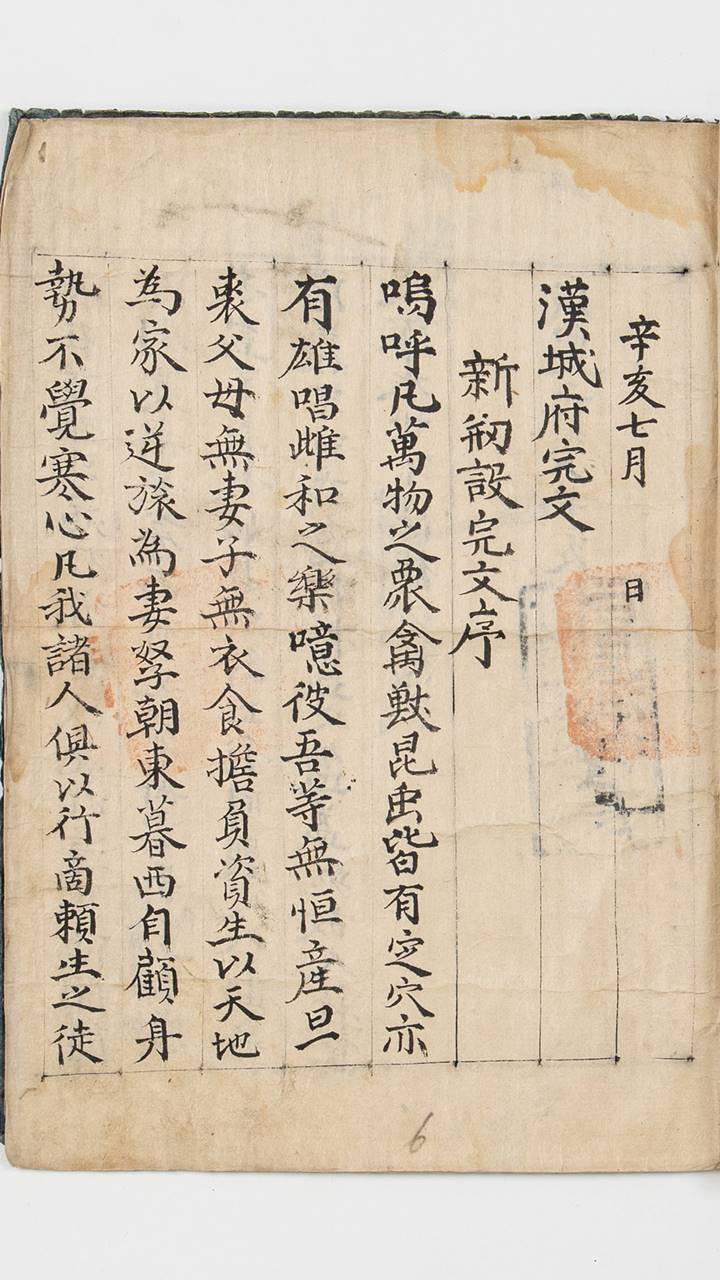 辛亥七月　　日
漢城府完文
新刱設完文序
嗚呼凡萬物之衆禽獸昆虫皆有定穴亦
有雄唱雌和之樂噫彼吾等無恒産且
喪父母無妻子無衣食擔負資生以天地
為家以逆旅為妻孥朝東暮西自顧身
勢不覺寒心凡我諸人俱以行啇頼生之徒
6